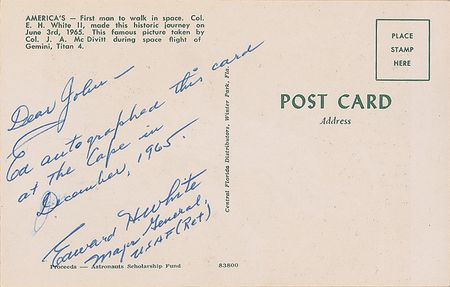 AMERICA'S — First man to walk in space. Col.
E. H. White II, made this historic journey on
June 3rd, 1965. This famous picture taken by
Col. J. A. McDivitt during space flight of
Gemini, Titan 4.
PLACE
STAMP
HERE
POST CARD
Address
Dear John —
Ed autographed this card
at the Cape in
December, 1965.
Edward H. White
Major General,
USAF (Ret)
Central Florida Distributors, Winter Park, Fla.
Proceeds — Astronauts Scholarship Fund
83800